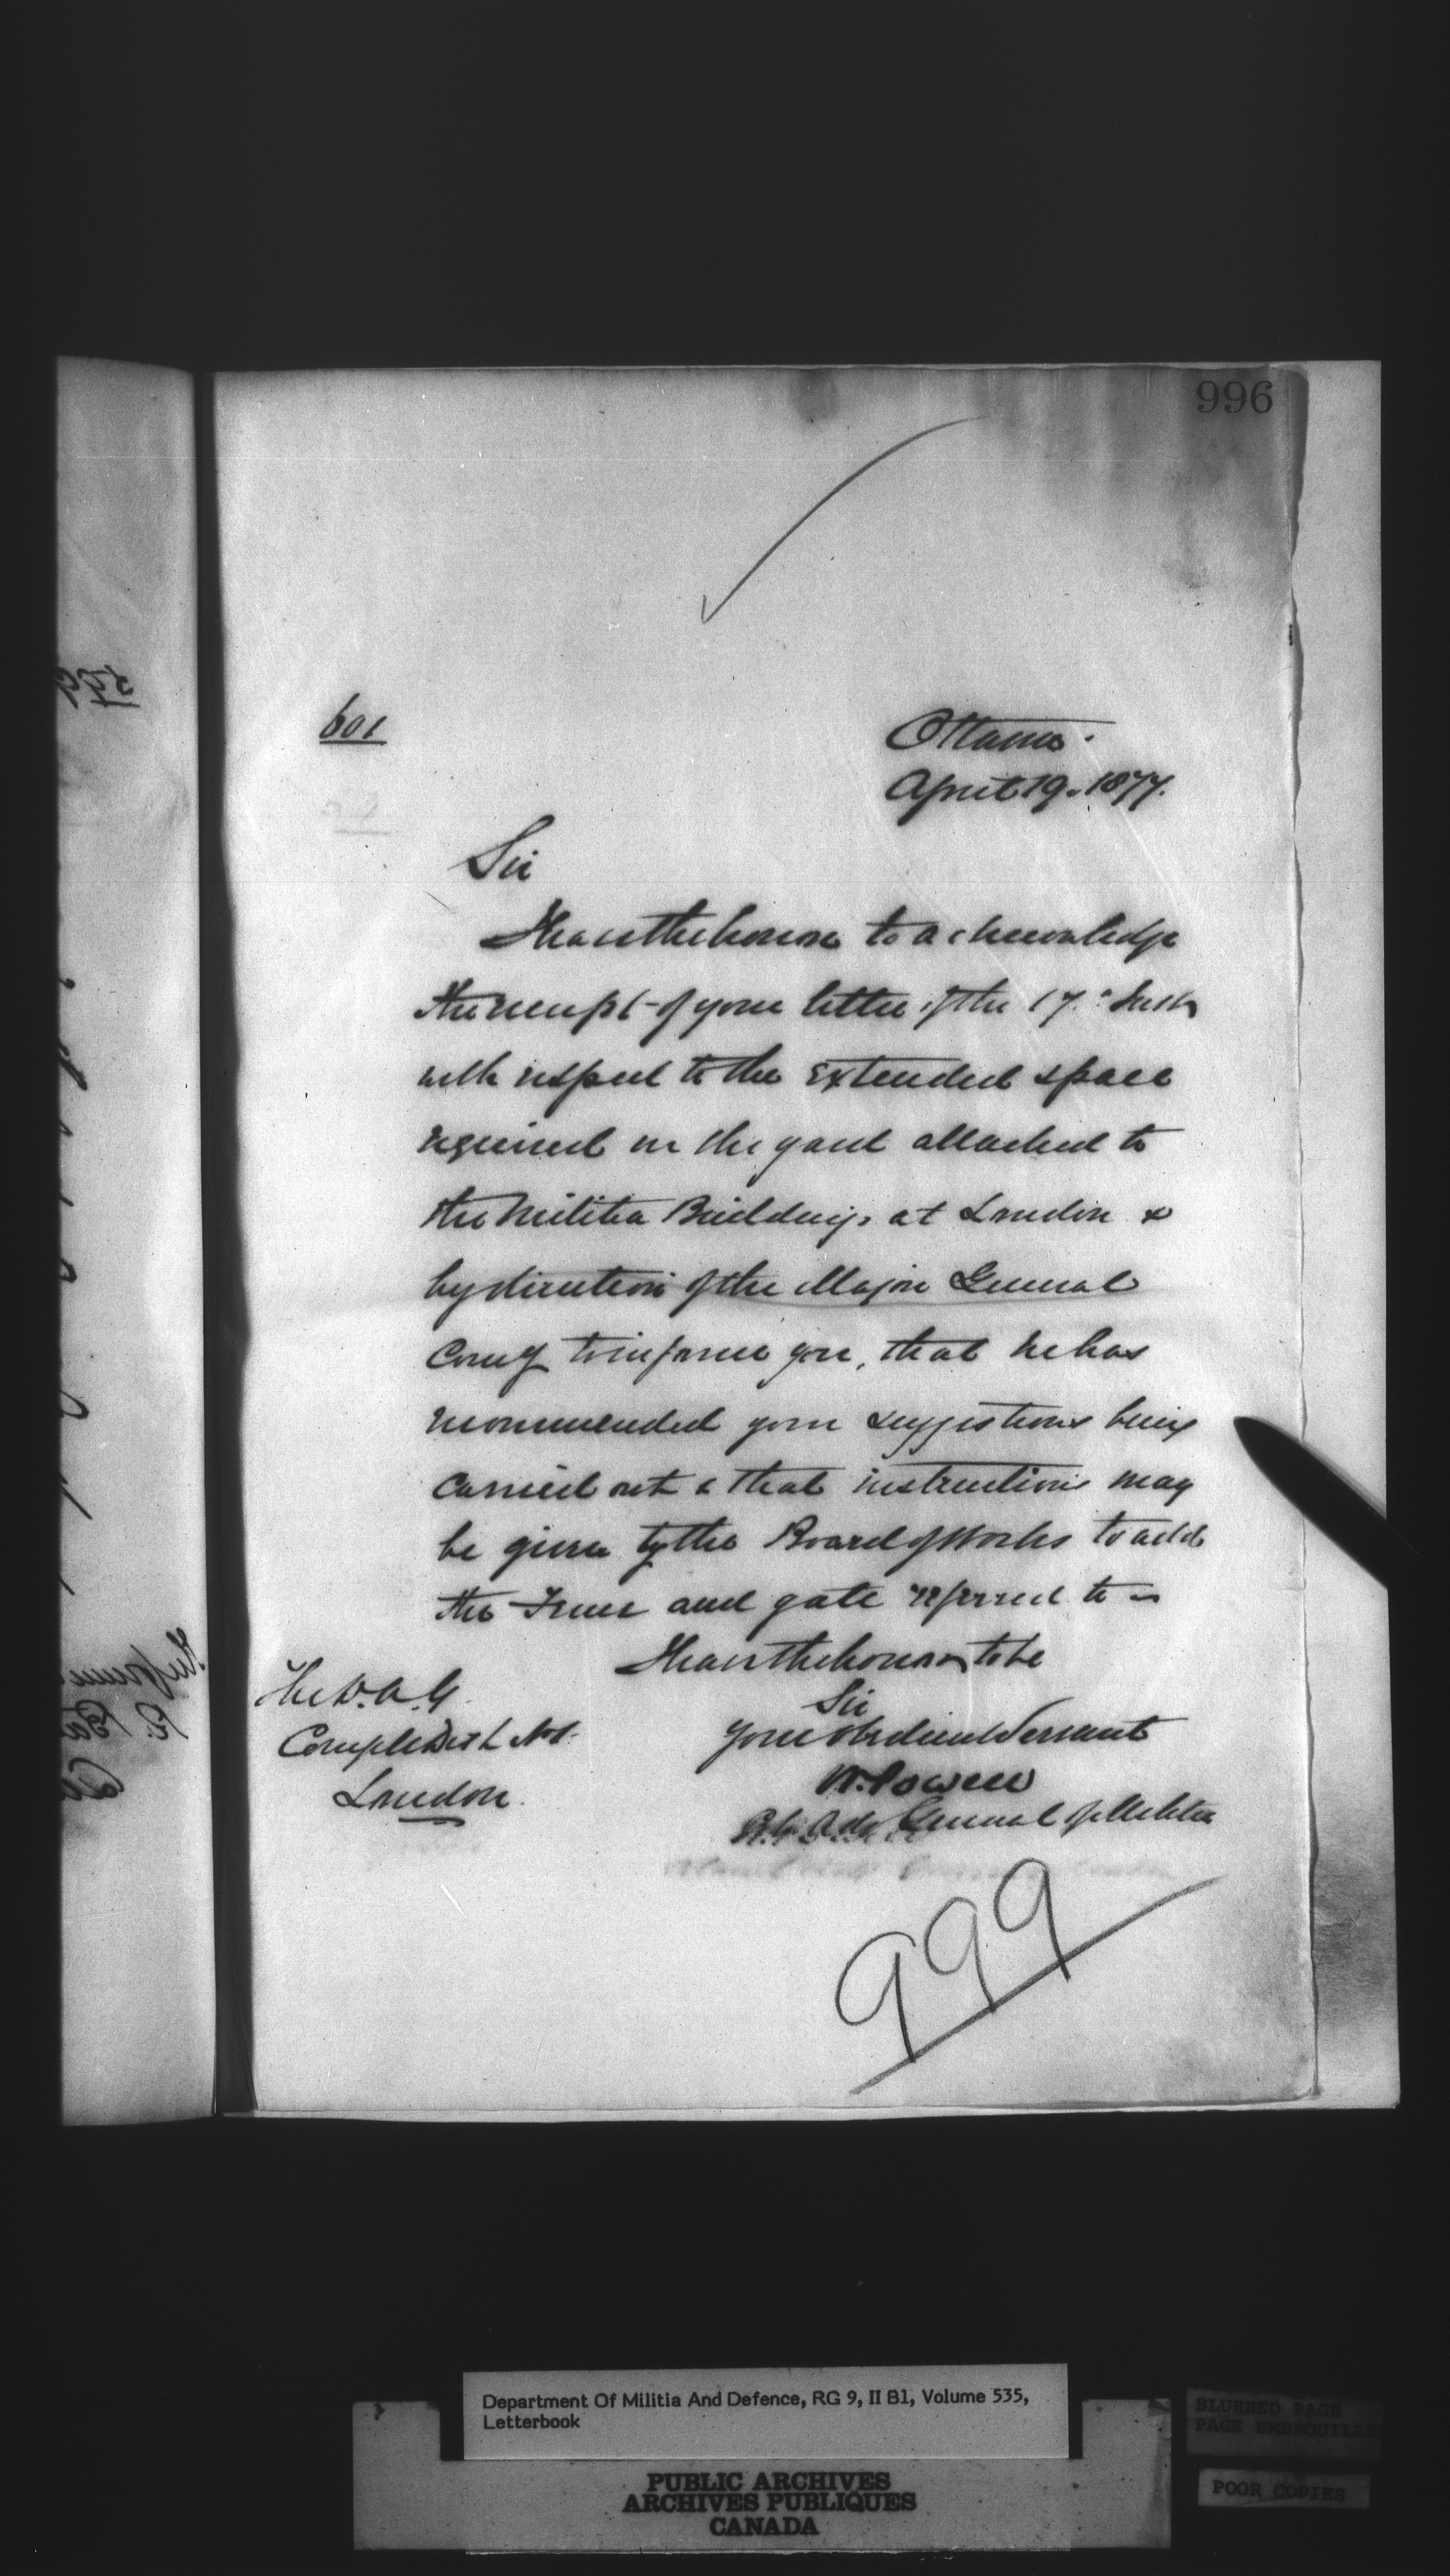 996
601
Ottawa.
April 19. 1877.
Sir
I have the honor to acknowledge
the receipt of your letter of the 17th Inst
with respect to the extended space
required in the yard attached to
the Militia Buildings at London &
by direction of the Major General
Comg to inform you, that he has
recommended your suggestions being
carried out & that instructions may
be given by the Board of Works to add
the Fence and gate referred to
I have the honor to be
Sir
Your obedient Servant
W. Powell
Adj General of Militia
The D.A.G.
Comg Dist No 1.
London.
999
Department Of Militia And Defence, RG 9, II B1, Volume 535,
Letterbook
PUBLIC ARCHIVES
ARCHIVES PUBLIQUES
CANADA
BLURRED PAGE
PAGE EMBROUILLE
POOR COPIES